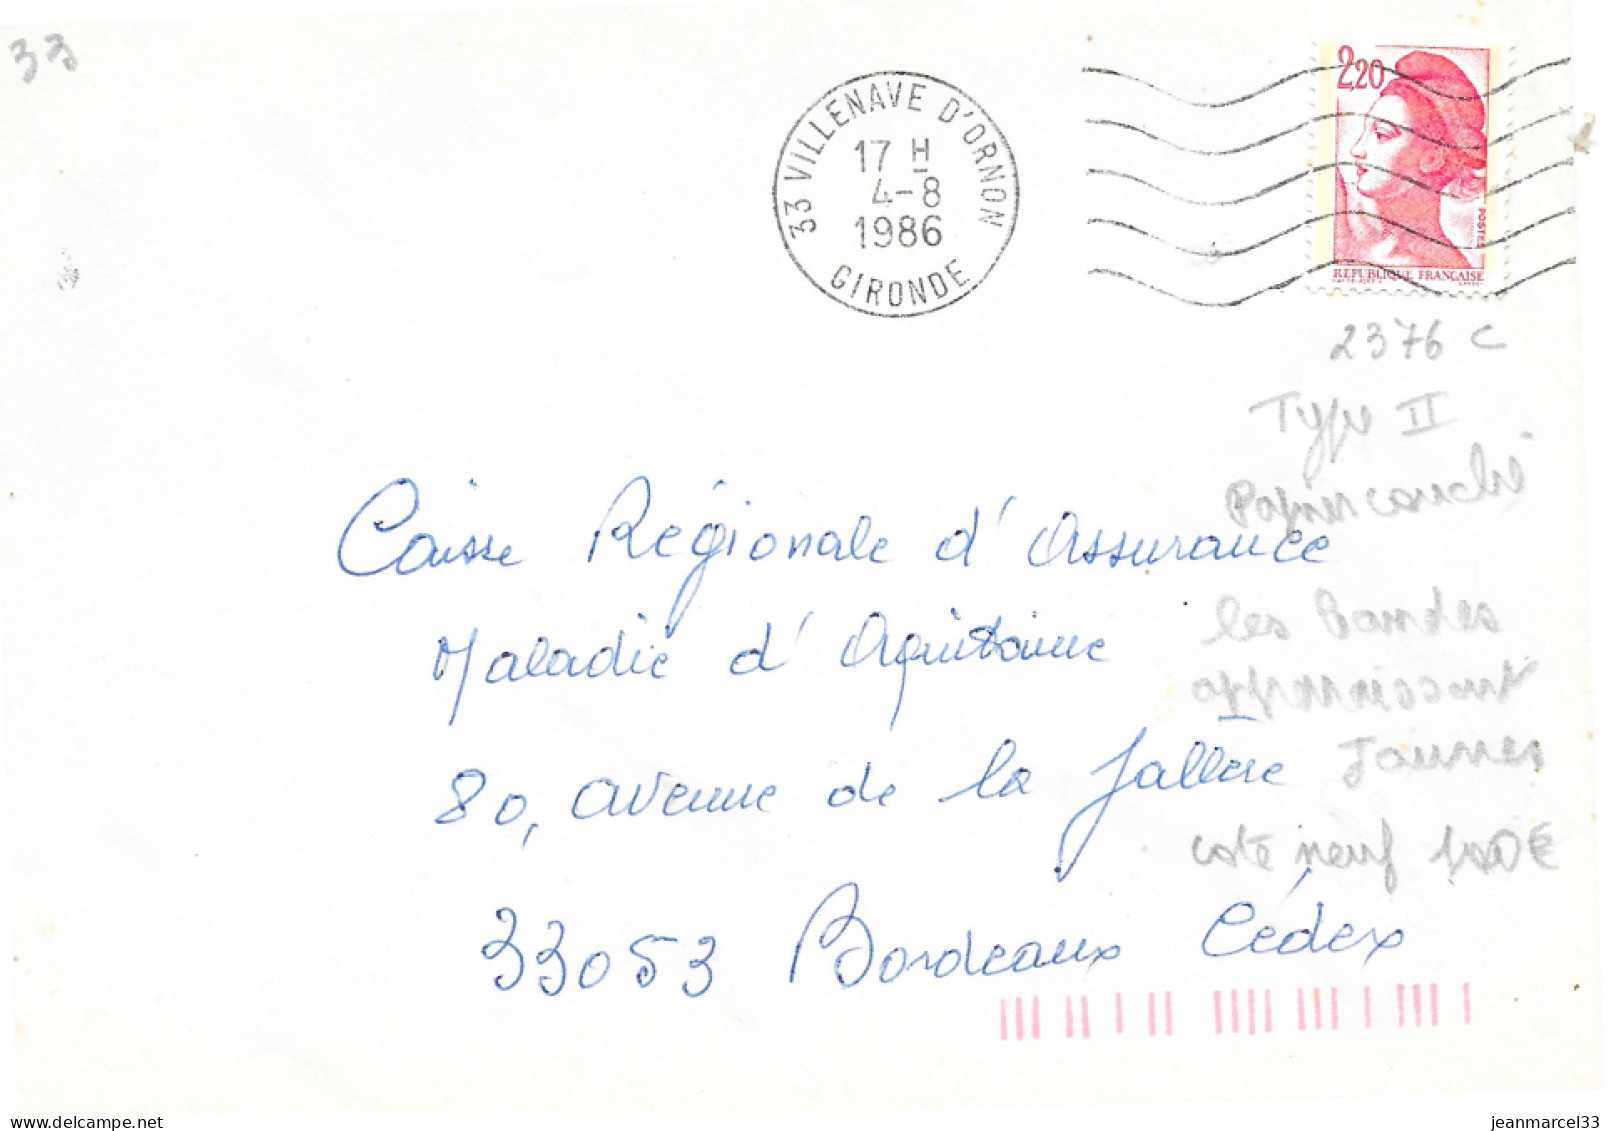 33
33 VILLENAVE D'ORNON
17 H
4-8
1986
GIRONDE
2,20
POSTES
REPUBLIQUE FRANÇAISE
2376 C
Type II
Papier couché
Caisse Régionale d'Assurance
les bandes
Maladie d'Aquitaine
apparaissant
80, avenue de la Jallère
Jaunes
cote neuf
33053 Bordeaux Cédex
delcampe.net
jeanmarcel33